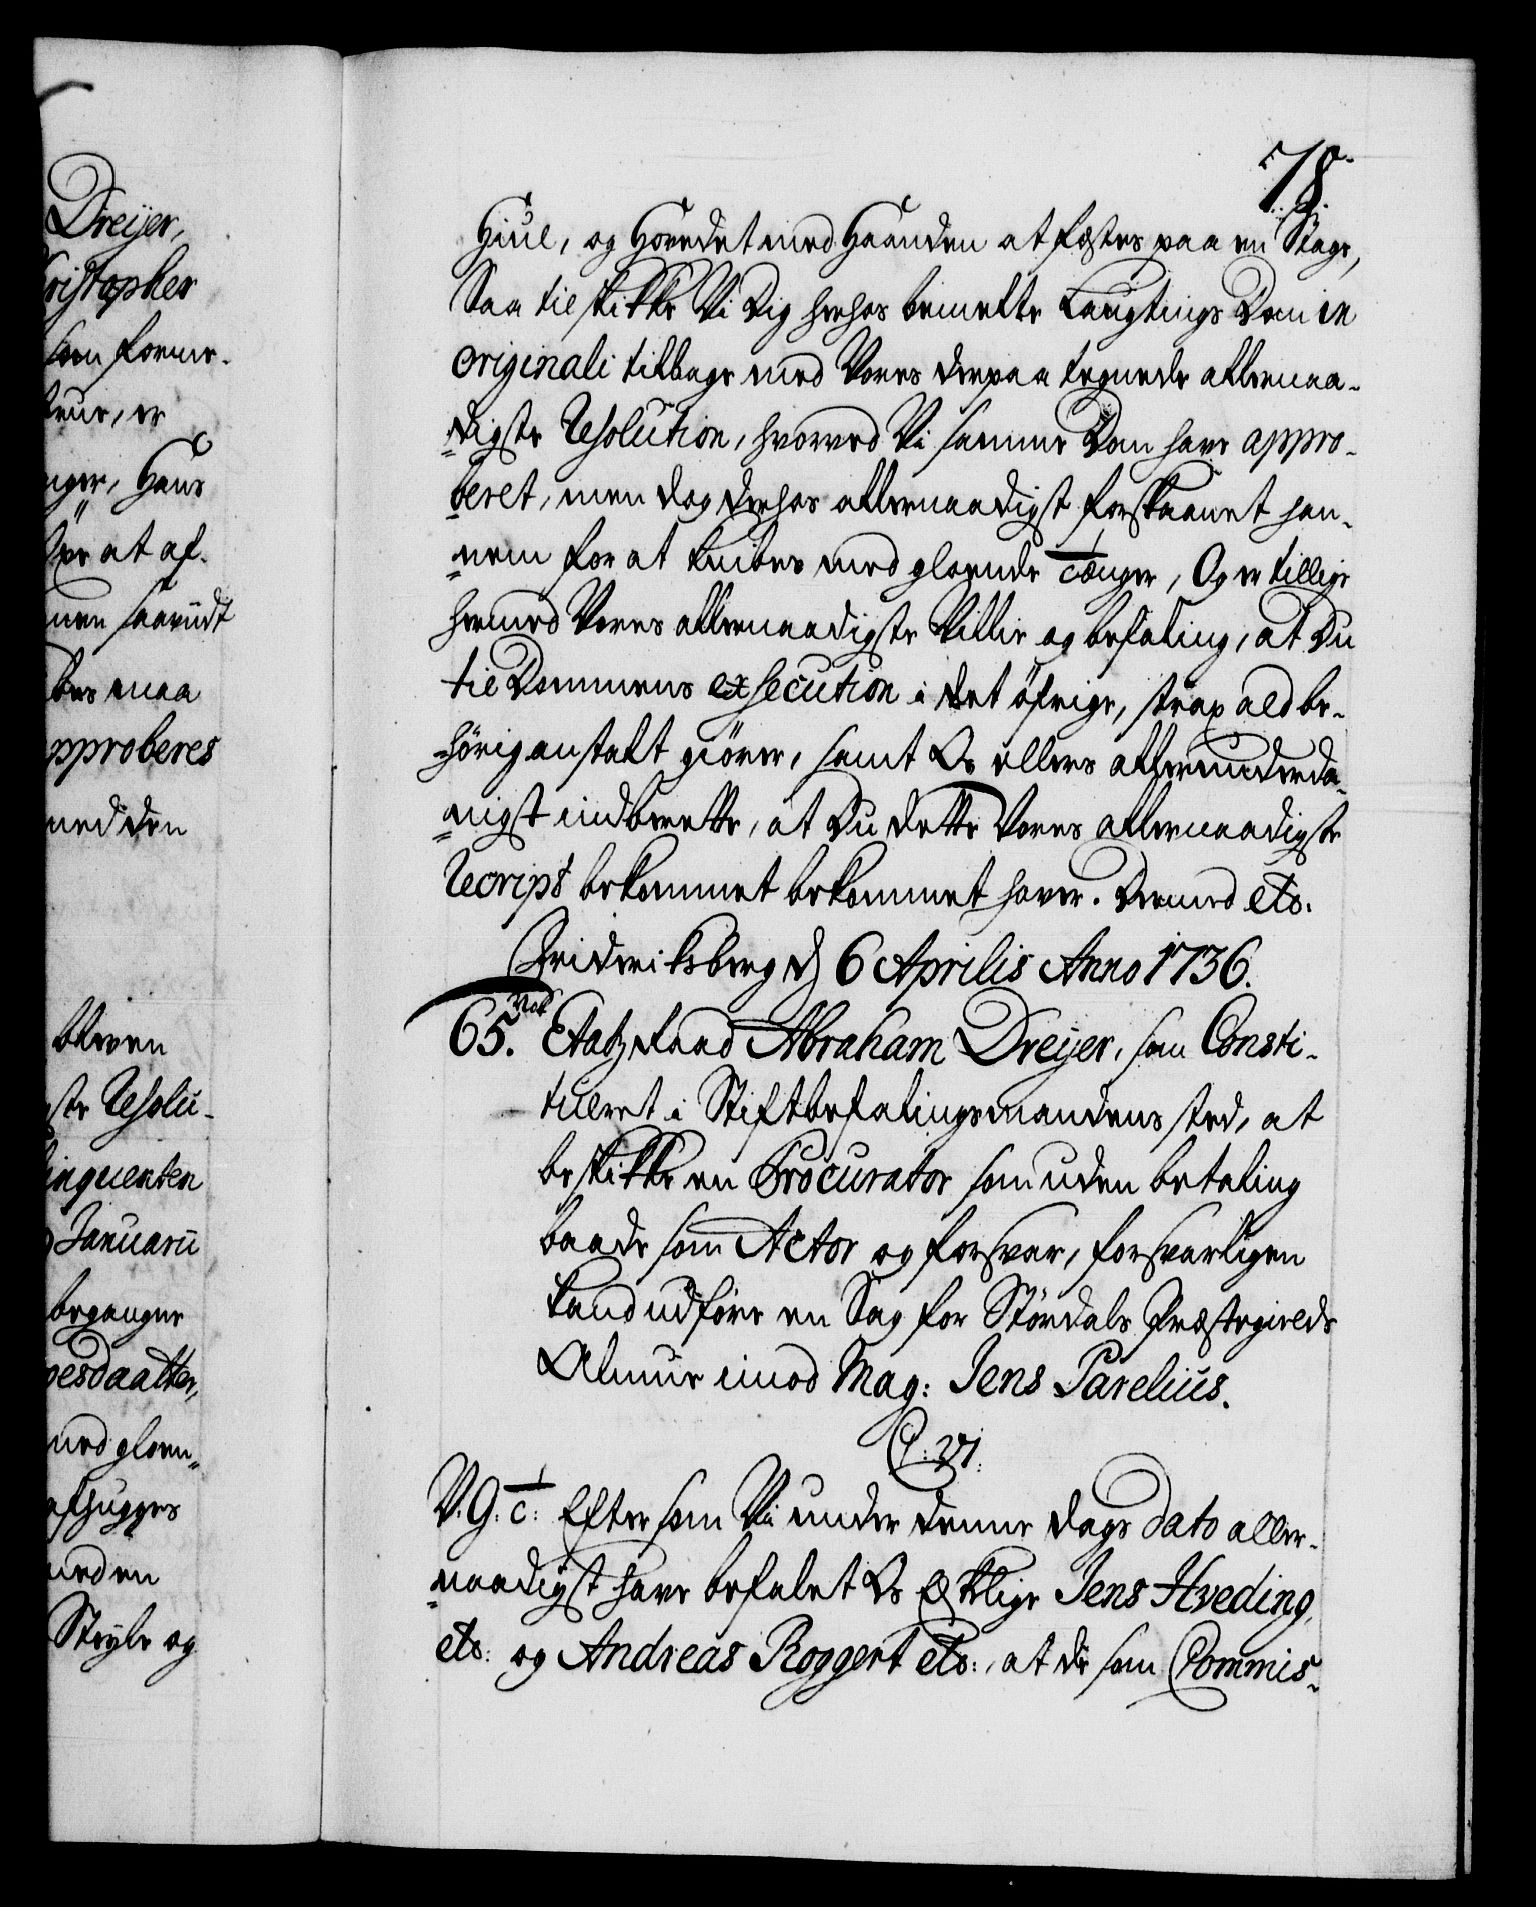 Dreÿer,
ristopher
som forme-
er
nger, Hans
at af-
men saavidt
maa
pproberes
med den
bleven
ste Resolu-
linquenten
Januarii
begangne
pesdaatter,
med gloen-
afhugges
med en
Steyle og
78.
Hiul, og Hovedet med Haanden at fæstes paa en Stage,
Saa tilskikke Vi Dig herhos bemelte Laugtings Dom in
originali tilbage med Vores derpaa tegnede allernaa-
digste Resolution, hvorved Vi samme Dom have appro-
beret, men dog derhos allernaadigst forskaanet han-
nem for at knibes med gloende Tænger, Og er tillige
hermed Vores allernaadigste Villie og befaling, at Du
til Dommens exsecution i det öfrige, strax ald be-
hörig anstalt giörer, samt Os ellers allerunderda-
nigst indberette, at Du dette Vores allernaadigste
Rescript bekommet bekommet haver. Dermed etc.
Frideriksberg d 6 Aprilis Anno 1736.
65. Etatz Raad Abraham Dreÿer, som Consti-
tueret i Stiftbefalingsmandens sted, at
beskikke en Procurator som uden betaling
baade som Actor og forsvar, forsvarligen
kand udföre en Sag for Stördals Præstegields
Almue imod Mag: Jens Parelius.
C: VI:
V. G. T: Efter som Vi under denne Dags Dato aller-
naadigst have befalet Os Elskelige Jens Hveding,
etc: og Andreas Roggert etc:, at de som Commis-